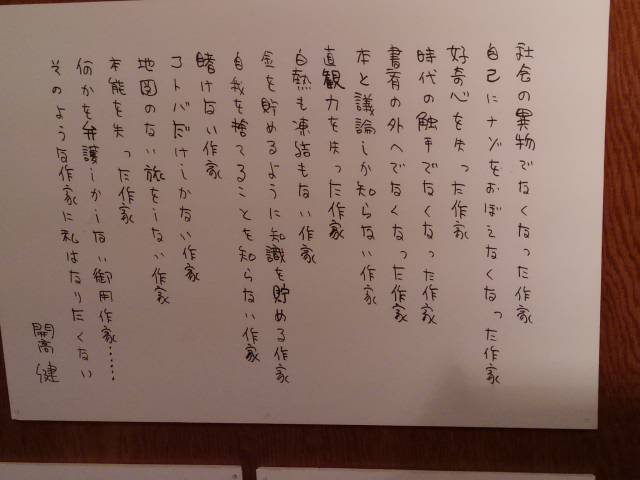 社会の異物でなくなった作家
自己にナゾをおぼえなくなった作家
好奇心を失った作家
時代の触手でなくなった作家
書斎の外へでなくなった作家
本と議論しか知らない作家
直観力を失った作家
白熱も凍結もない作家
金を貯めるように知識を貯める作家
自我を捨てることを知らない作家
賭けない作家
コトバだけしかない作家
地図のない旅をしない作家
本能を失った作家
何かを弁護しかしない御用作家……
そのような作家に私はなりたくない
開高健